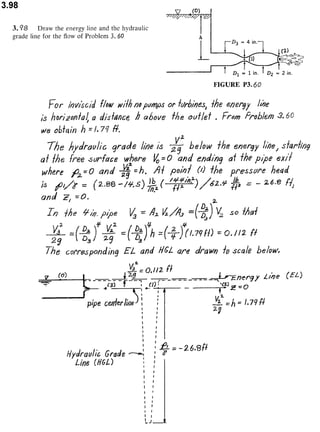 3.98
3.98 Draw the energy line and the hydraulic
grade line for the flow of Problem 3.60
(0)
D₃ = 4 in.
(1)
(2)
D₁ = 1 in.
D₂ = 2 in.
FIGURE P3.60
For inviscid flow with no pumps or turbines, the energy line
is horizontal, a distance h above the outlet. From Problem 3.60
we obtain h = 1.79 ft.
The hydraulic grade line is V²/2g below the energy line, starting
at the free surface where V₀ = 0 and ending at the pipe exit
where p₂ = 0 and V₂²/2g = h. At point (1) the pressure head
is p₁/γ = (2.88 - 14.5) lb/in² (144 in²/ft²) / 62.4 lb/ft³ = - 26.8 ft,
and z₁ = 0.
In the 4-in. pipe V₃ = A₂V₂/A₃ = (D₂/D₃)² V₂ so that
V₃²/2g = (D₂/D₃)⁴ V₂²/2g = (D₂/D₃)⁴ h = (2/4)⁴ (1.79 ft) = 0.112 ft
The corresponding EL and HGL are drawn to scale below.
V₃²/2g = 0.112 ft
(0)
Energy Line (EL)
(3)
(1)
(2)
z = 0
pipe centerline
V₂²/2g = h = 1.79 ft
Hydraulic Grade
Line (HGL)
p₁/γ = - 26.8 ft